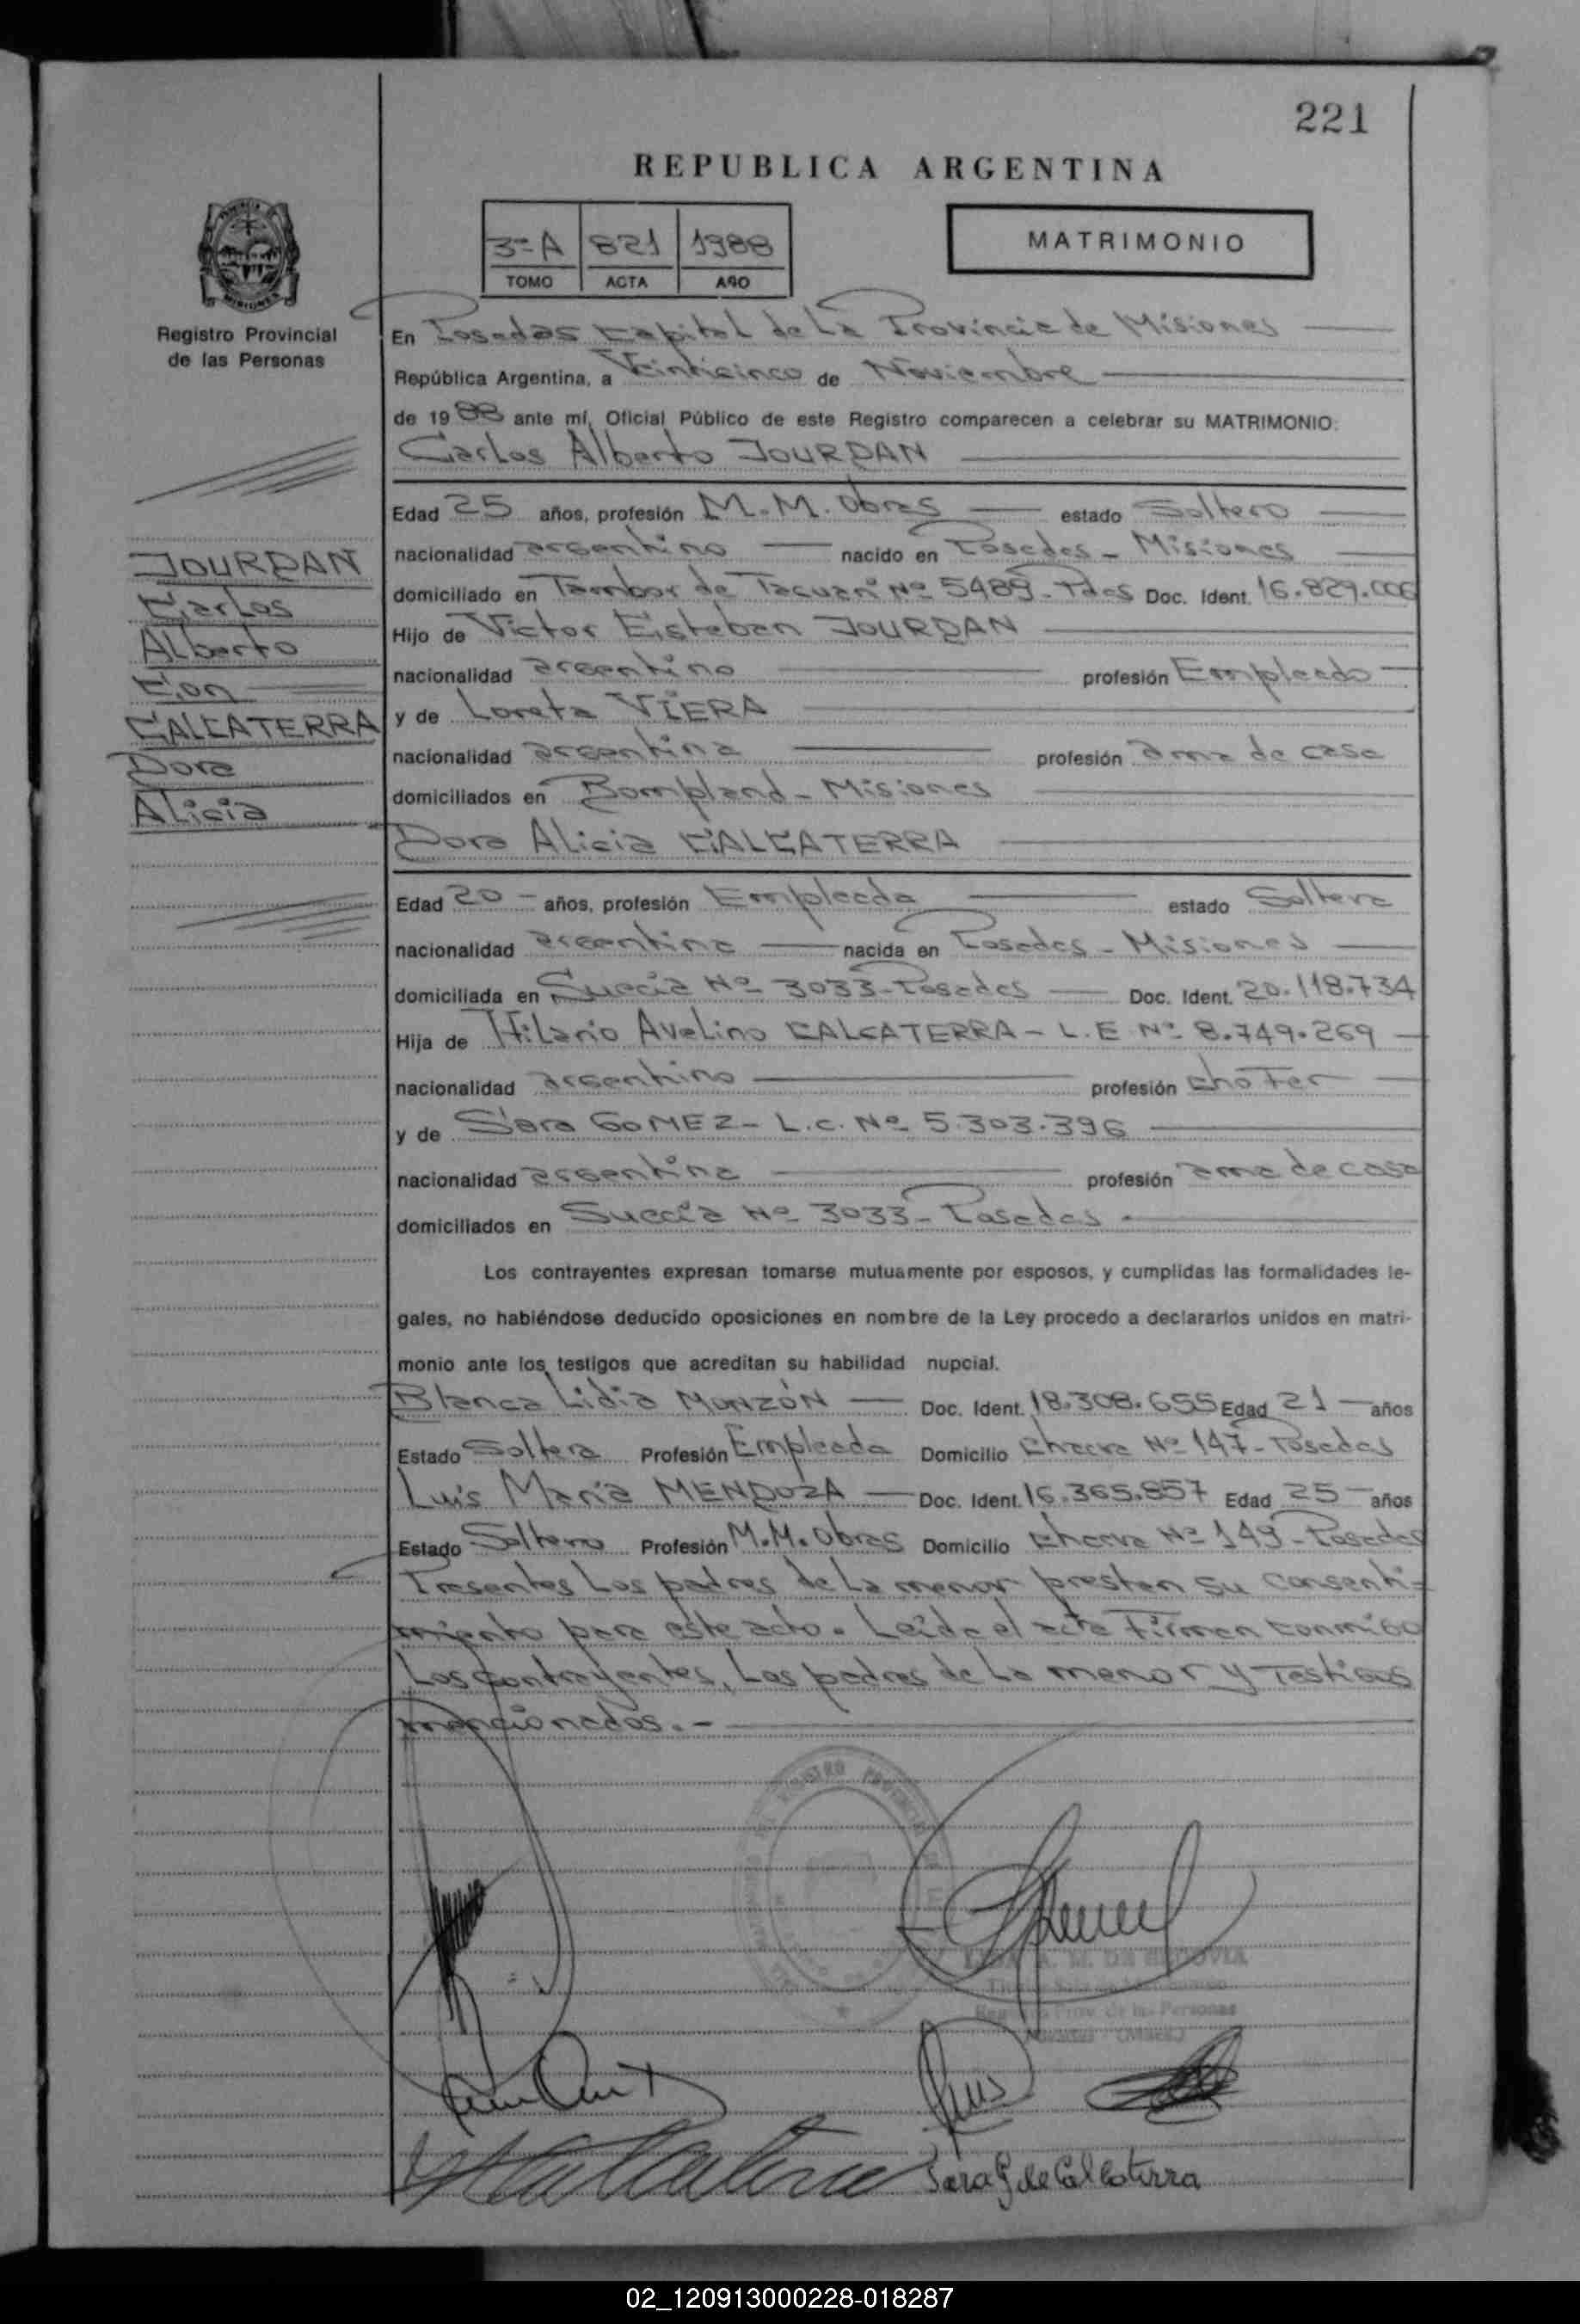 221
REPUBLICA ARGENTINA
3º A 821 1988
TOMO ACTA AÑO
MATRIMONIO
MISIONES
Registro Provincial
de las Personas
En Posadas Capital de La Provincia de Misiones
República Argentina, a Veinticinco de Noviembre
de 1988 ante mí, Oficial Público de este Registro comparecen a celebrar su MATRIMONIO:
Carlos Alberto JOURDAN
Edad 25 años, profesión M.M. Obras estado Soltero
nacionalidad argentino nacido en Posadas - Misiones
domiciliado en Tambor de Tacuarí Nº 5489 - Pdas Doc. Ident. 16.829.006
Hijo de Victor Esteban JOURDAN
nacionalidad argentino profesión Empleado
y de Loreta VIERA
nacionalidad argentina profesión ama de casa
domiciliados en Bompland - Misiones
Dora Alicia CALCATERRA
Edad 20 - años, profesión Empleada estado Soltera
nacionalidad argentina nacida en Posadas - Misiones
domiciliada en Suecia Nº 3033 - Posadas Doc. Ident. 20.118.734
Hija de Hilario Avelino CALCATERRA - L.E Nº 8.749.269
nacionalidad argentino profesión choFer
y de Sara GOMEZ - L.C. Nº 5.303.396
nacionalidad argentina profesión ama de casa
domiciliados en Suecia Nº 3033 - Posadas
Los contrayentes expresan tomarse mutuamente por esposos, y cumplidas las formalidades le-
gales, no habiéndose deducido oposiciones en nombre de la Ley procedo a declararlos unidos en matri-
monio ante los testigos que acreditan su habilidad nupcial.
Blanca Lidia MONZÓN Doc. Ident. 18.308.655 Edad 21 años
Estado Soltera Profesión Empleada Domicilio Chacra Nº 147 - Posadas
Luis María MENDOZA Doc. Ident. 16.365.857 Edad 25 años
Estado Soltero Profesión M.M. Obras Domicilio Chacra Nº 149 - Posadas
Presentes Los padres de La menor prestan su consenti-
miento para este acto. Leída el acta Firman conmigo
Los contrayentes, Los padres de La menor y Testigos
mencionados. -
JOURDAN
Carlos
Alberto
Con
CALCATERRA
Dora
Alicia
REGISTRO PROVINCIAL DE
A. M. DE
Prov. de las Personas
Luis
Sara G de Calcaterra
02_120913000228-018287